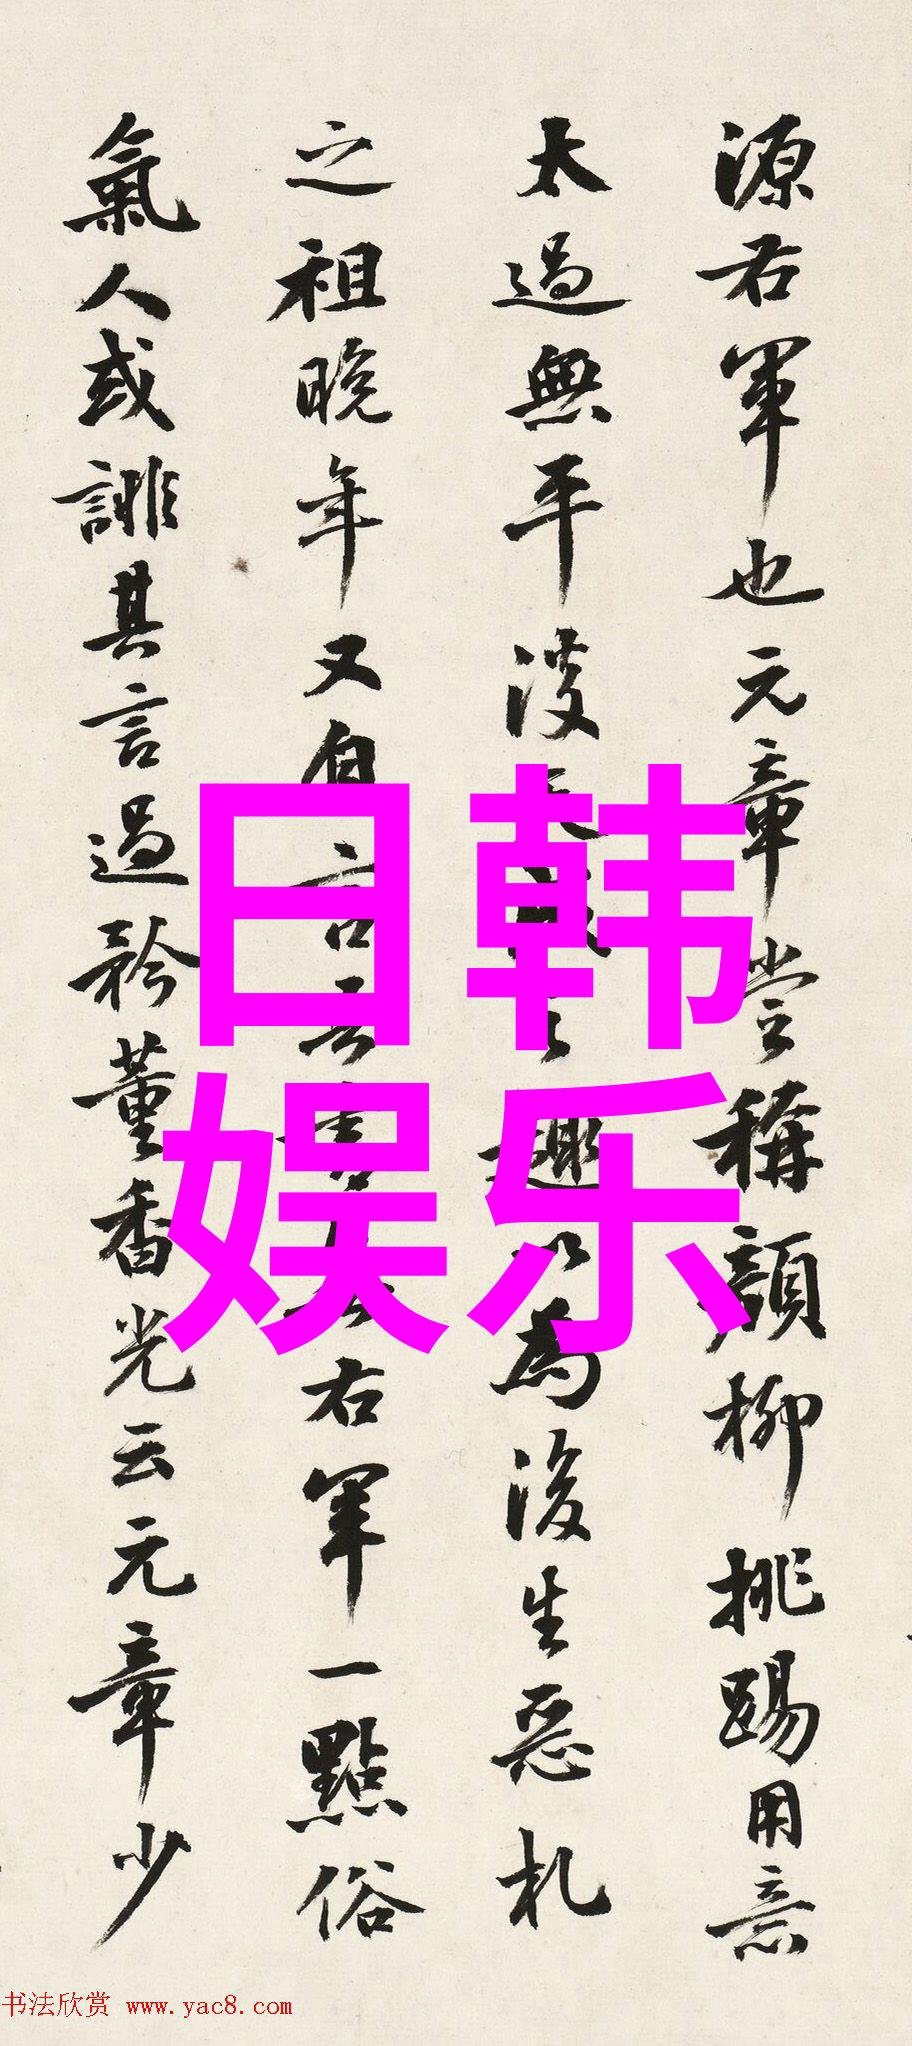 源右軍也元章嘗稱顏柳挑踢用意
太過無平淡趣為後生惡札
之祖晚年又自言吾右軍一點俗
氣人或誹其言過矜董香光云元章少
日韩
娱乐
书法欣赏 www.yac8.com